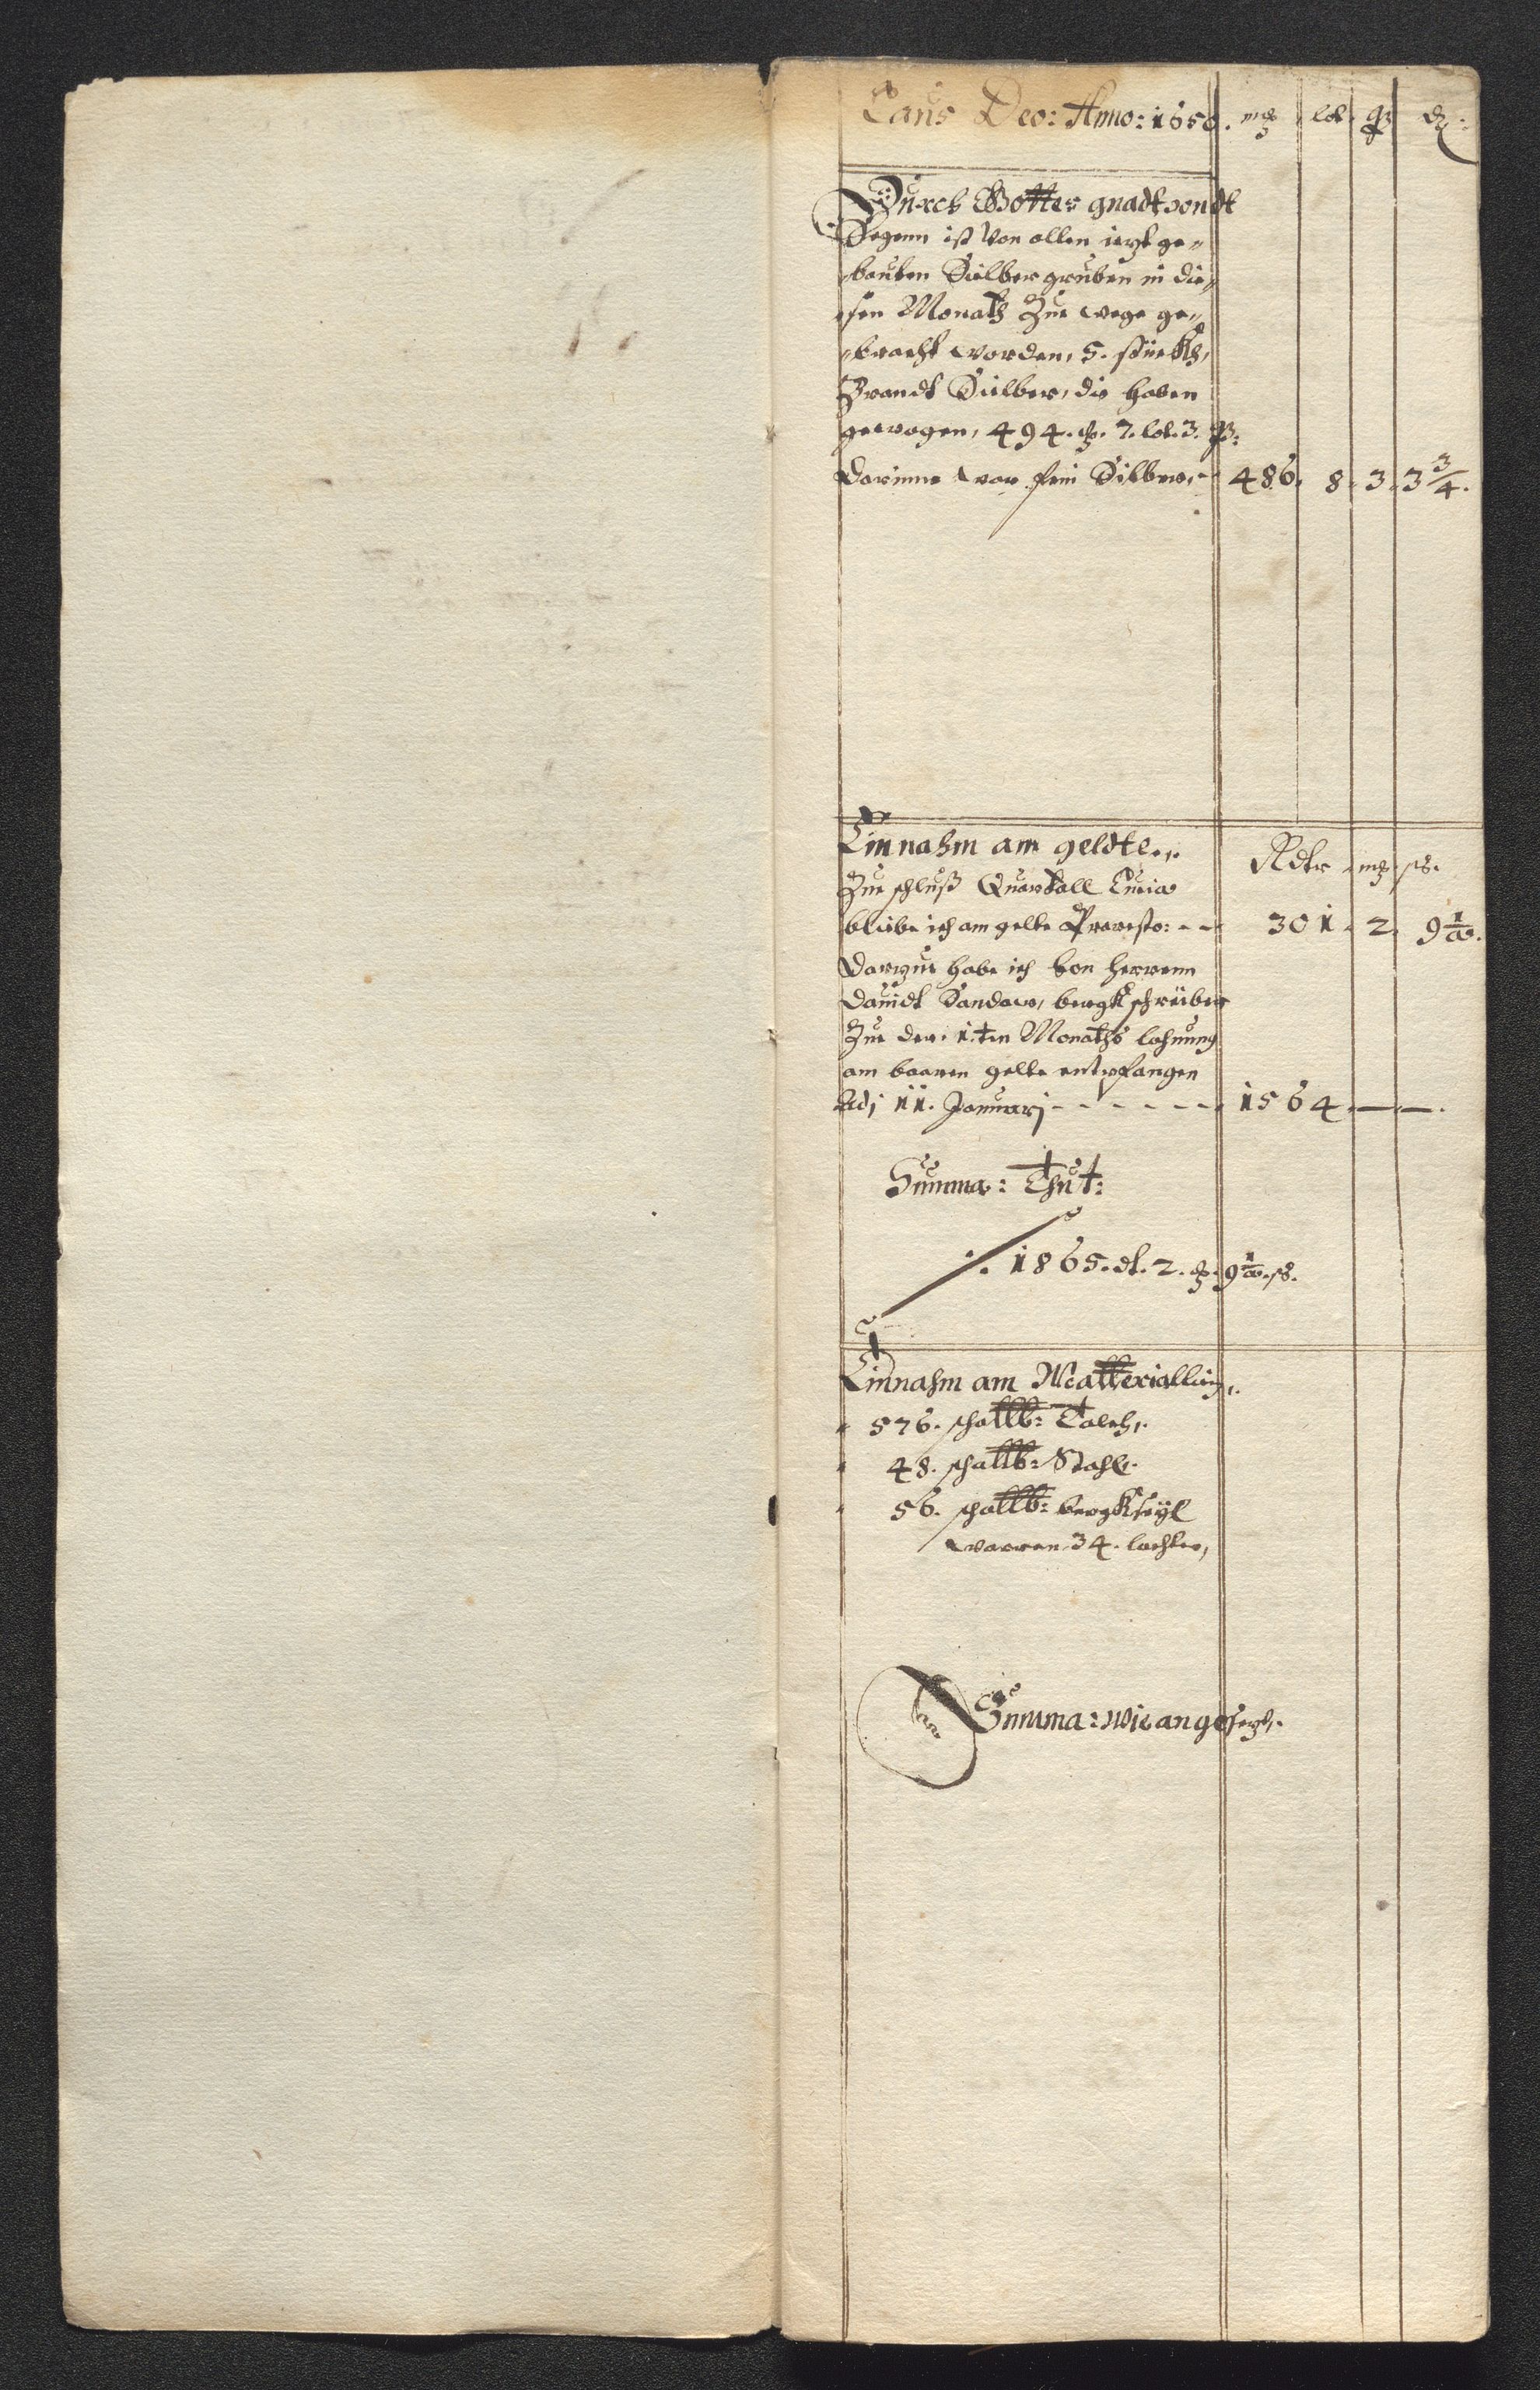 Laus Deo: Anno: 1650. mk lot q d:
Durch Gottes gnadt vondt
Segenn ist Von allen ietzt ge-
bauten Süilber gruben in die-
sen Monath Zue wege ge-
bracht worden, 5. stückh,
Brandt Süilber, die haben
gewogen, 494. mk. 7. lot. 3. q:
darinne war fein Silber, - 486. 8. 3. 3 3/4.
Einnahm am geldte.
Rdlr mk ss.
Zue schluß Quartall Lucia
bliebe ich am gelte Praresto: - - 301. 2. 9 1/2.
darzue habe ich von herrenn
Dauidt Sandaw, bergkschrüiber
Zue der. 1.ten Monaths lohnung
am baaren gelte entpfangen
Adj 11. Januarj - - - - - - 1564. — —.
Summa: Thut:
1865. dl. 2. mk. 9 1/2. ss.
Einnahm am Matteriallien,
576. schallb: Talch,
48. schallb: Stahl.
56. schallb: bergkseyl
warren 34. lachter,
Summa: wie angesetzt,